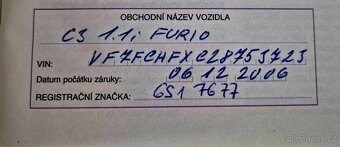 OBCHODNÍ NÁZEV VOZIDLA
C3 1.1i FURIO
VIN: VF7FCHFXC28753723
Datum počátku záruky: 06 12 2006
REGISTRAČNÍ ZNAČKA: 6S1 7677